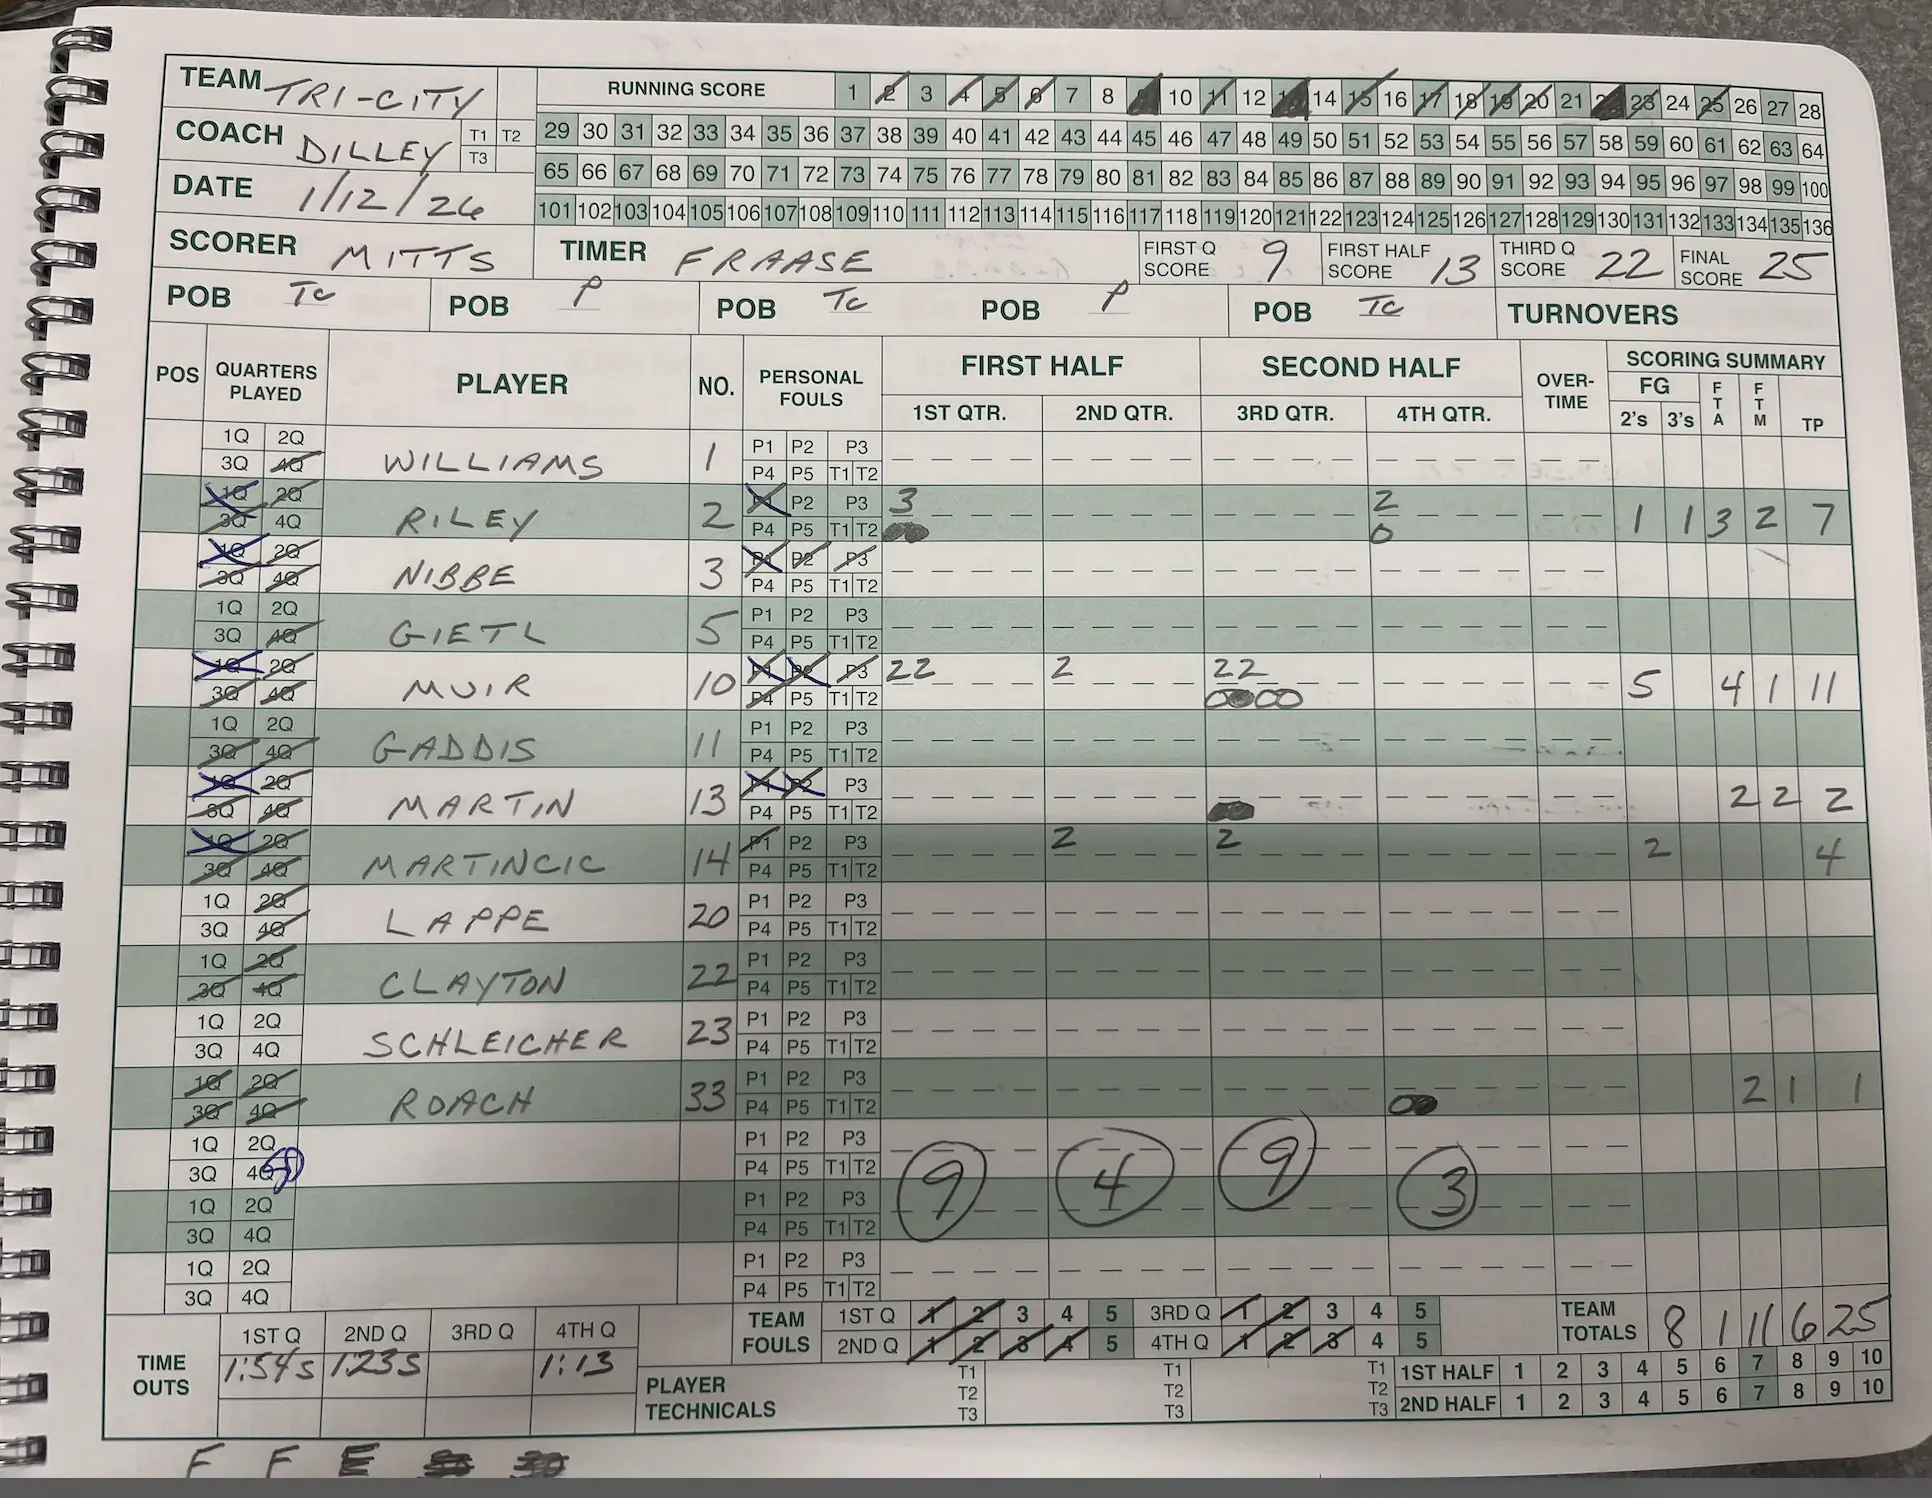 TEAM TRI-CITY
RUNNING SCORE 1 2 3 4 5 6 7 8 10 11 12 13 14 15 16 17 18 19 20 21 23 24 25 26 27 28
COACH DILLEY T1 T2 T3
29 30 31 32 33 34 35 36 37 38 39 40 41 42 43 44 45 46 47 48 49 50 51 52 53 54 55 56 57 58 59 60 61 62 63 64
DATE 1/12/26
65 66 67 68 69 70 71 72 73 74 75 76 77 78 79 80 81 82 83 84 85 86 87 88 89 90 91 92 93 94 95 96 97 98 99 100
101 102 103 104 105 106 107 108 109 110 111 112 113 114 115 116 117 118 119 120 121 122 123 124 125 126 127 128 129 130 131 132 133 134 135 136
SCORER MITTS TIMER FRAASE FIRST Q SCORE 9 FIRST HALF SCORE 13 THIRD Q SCORE 22 FINAL SCORE 25
POB TC POB P POB TC POB P POB TC TURNOVERS
POS QUARTERS PLAYED PLAYER NO. PERSONAL FOULS FIRST HALF SECOND HALF OVER-TIME SCORING SUMMARY
1ST QTR. 2ND QTR. 3RD QTR. 4TH QTR. FG 2's 3's FTA FTM TP
1Q 2Q P1 P2 P3
3Q 4Q WILLIAMS 1 P4 P5 T1 T2
1Q 2Q P1 P2 P3 3 2
3Q 4Q RILEY 2 P4 P5 T1 T2 0 1 1 3 2 7
1Q 2Q P1 P2 P3
3Q 4Q NIBBE 3 P4 P5 T1 T2
1Q 2Q P1 P2 P3
3Q 4Q GIETL 5 P4 P5 T1 T2
1Q 2Q P1 P2 P3 22 2 22
3Q 4Q MUIR 10 P4 P5 T1 T2 0000 5 4 1 11
1Q 2Q P1 P2 P3
3Q 4Q GADDIS 11 P4 P5 T1 T2
1Q 2Q P1 P2 P3
3Q 4Q MARTIN 13 P4 P5 T1 T2 2 2 2
1Q 2Q P1 P2 P3 2 2
3Q 4Q MARTINCIC 14 P4 P5 T1 T2 2 4
1Q 2Q P1 P2 P3
3Q 4Q LAPPE 20 P4 P5 T1 T2
1Q 2Q P1 P2 P3
3Q 4Q CLAYTON 22 P4 P5 T1 T2
1Q 2Q P1 P2 P3
3Q 4Q SCHLEICHER 23 P4 P5 T1 T2
1Q 2Q P1 P2 P3
3Q 4Q ROACH 33 P4 P5 T1 T2 00 2 1 1
1Q 2Q P1 P2 P3
3Q 4Q P4 P5 T1 T2 9 4 9 3
1Q 2Q P1 P2 P3
3Q 4Q P4 P5 T1 T2
1Q 2Q P1 P2 P3
3Q 4Q P4 P5 T1 T2
TIME OUTS 1ST Q 2ND Q 3RD Q 4TH Q
1:54s 1:23s 1:13
TEAM FOULS 1ST Q 1 2 3 4 5 3RD Q 1 2 3 4 5
2ND Q 1 2 3 4 5 4TH Q 1 2 3 4 5
TEAM TOTALS 8 1 11 6 25
PLAYER TECHNICALS T1 T2 T3 T1 T2 T3 T1 T2 T3
1ST HALF 1 2 3 4 5 6 7 8 9 10
2ND HALF 1 2 3 4 5 6 7 8 9 10
F F E